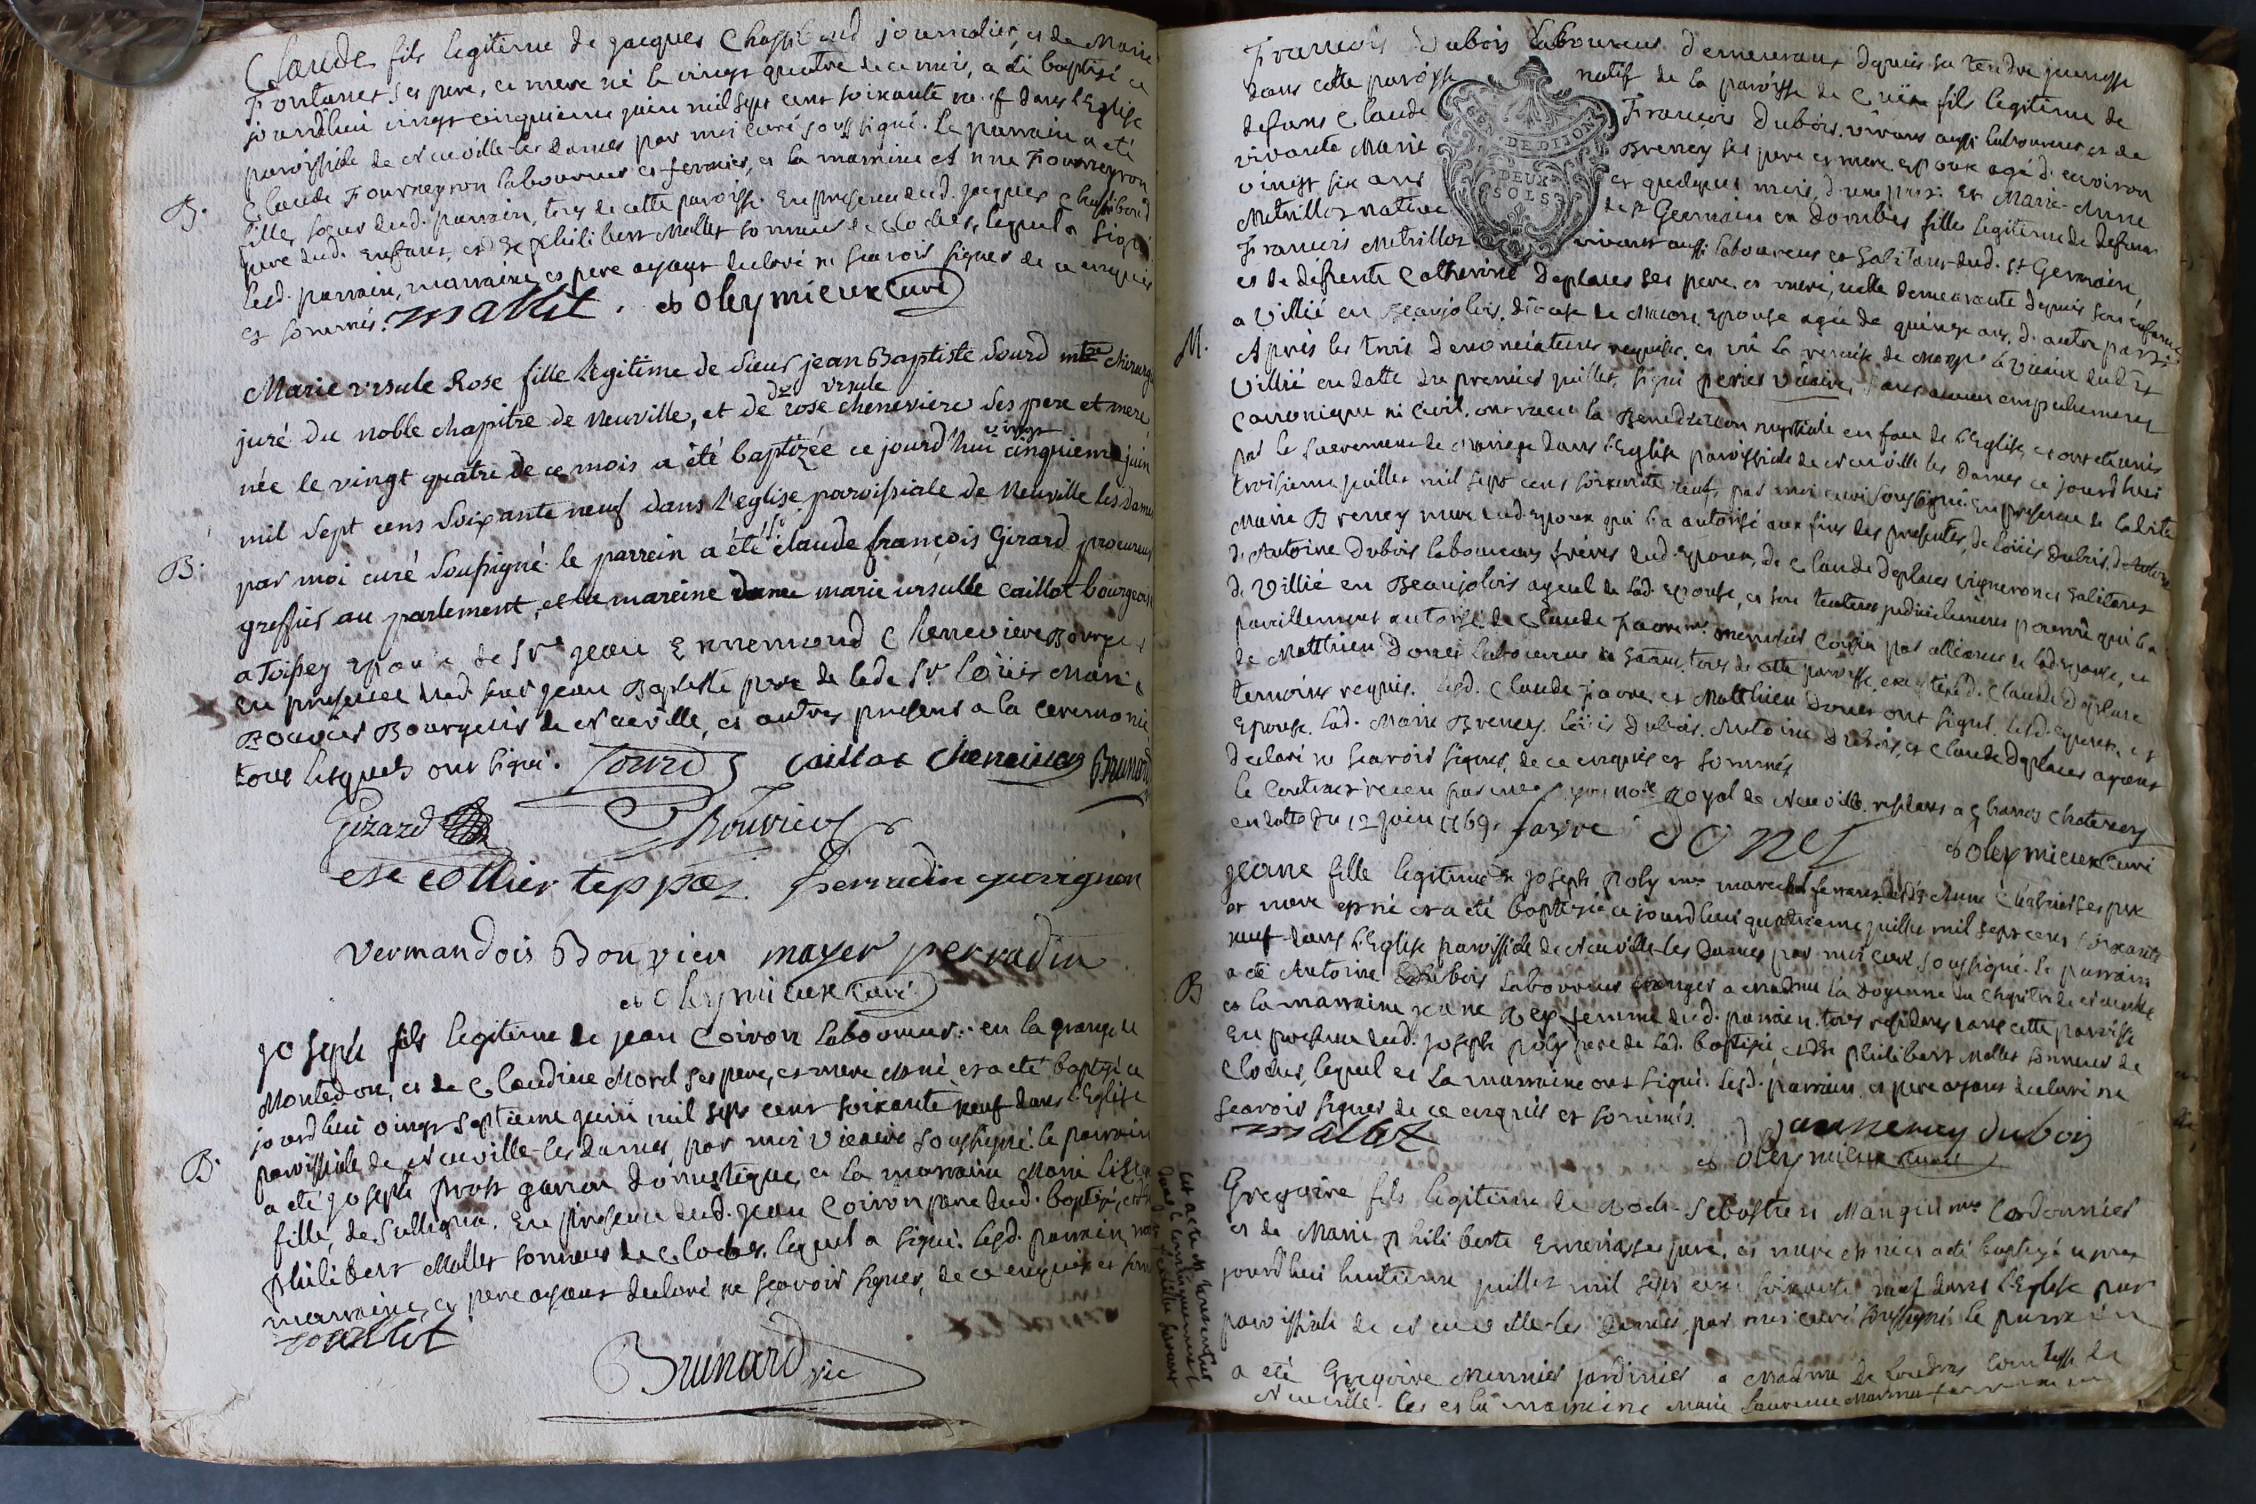 Claude fils legitime de jacques Chassiboud journalier, et de Marie
Fontanet ses pere, et mere né le vingt quatre de ce mois, a été baptisé ce
jourdhui vingt cinquieme juin mil sept cent soixante neuf dans l'Eglise
paroissiale de Neuville-les-Dames par moi curé soussigné. Le parrain a été
Claude Fourneyron laboureur et fermier, et la marraine Anne Fourneyron
B.
fille, soeur dud. parrain, tous de cette paroisse. En presence dud. jacques Chassiboud
pere dud. Enfant, et de philibert Mallet sonneur de cloches, lequel a signé
lesd. parrain, marraine et pere ayant declaré ne scavoir signer de ce enquis
et sommés. mallet . Oleymieux curé
Marie ursule Rose fille legitime de Sieur jean Baptiste Sourd mtre chirurg
juré du noble chapitre de Neuville, et de dlle rose ursule cheneviere ses pere et mere
née le vingt quatre de ce mois a été baptizée ce jourd'hui vingt cinquieme juin
mil sept cens soixante neuf dans l'eglise paroissiale de Neuville les Dames
B.
par moi curé soussigné. le parrein a été sr claude francois Girard procureur
greffier au parlement, et la mareine dame marie ursulle caillat bourgeoise
a Toissey epouse de Sr jean Ennemond Cheneviere Bourge
en presence dud. sieur jean Baptiste pere de lade Sr Loüis Marie
Rouvier Bourgeois de Neuville, et autres presens a la ceremonie
tous lesquels ont signé. Sourd caillat cheneviere Brunard
Girard Rouvier
vermandois Bouvier mayer perradin
Oleymieux curé
joseph fils legitime de jean Coiron laboureur en la grange de
Montedon, et de Claudine Morel ses pere, et mere est né et a été baptizé ce
jourdhui vingt septieme juin mil sept cent soixante neuf dans l'Eglise
B.
paroissiale de Neuville-les-Dames, par moi vicaire soussigné. le parrain
a été joseph prost garçon domestique, et la marraine Marie
fille, de Sulligna. En presence dud. jean Coiron pere dud. baptizé, et de
philibert Mallet sonneur de cloches, lequel a signé. lesd. parrain,
marraine, et pere ayant declaré ne scavoir signer, de ce enquis et som
mallet
Brunard vic
Francois Dubois laboureur demeurant depuis sa tendre jeunesse
dans cette paroisse natif de la paroisse de fils legitime de
defunt Claude Francois Dubois, vivant aussi laboureur, et de
vivante Marie Breney ses pere et mere, epoux agé d'environ
vingt six ans et quelques mois, d'une part. Et Marie-Anne
Metrillot native de St Germain en Dombes fille legitime de defunt
Francois Metrillot vivant aussi laboureur et habitant dud. St Germain,
et de défunte Catherine Deplaces ses pere et mere, icelle demeurante depuis son enfance
a Villié en Beaujolois, diocese de Macon, epouse agée de quinze ans, d'autre part.
M.
Après les trois denonciations requises, et vû la remise de Monsr le Vicaire dud.
Villié en datte du premier juillet, signé perier vicaire, sans aucun empechement
canonique ni civil, ont recu la Benediction nuptiale en face de l'Eglise, et ont été unis
par le sacrement de Mariage dans l'Eglise paroissiale de Neuville les Dames ce jourdhui
troisieme juillet mil sept cens soixante neuf, par moi curé soussigné. En presence de ladite
Marie Breney mere dud. epoux qui l'a autorisé aux fins des presentes, de Loüis Dubois,
d'Antoine Dubois laboureurs freres dud. epoux, de Claude Deplaces vigneron et habitant
de Villié en Beaujolois ayeul de lad. epouse, et son tuteur
pareillement autorisé, de Claude Favre mre menuisier cousin par alliance de lad. epouse, et
de Matthieu Donet laboureur tous de cette paroisse,
temoins requis. lesd. Claude Favre, et Matthieu Donet ont signé. lesd. epoux, et
Epouse, lad. Marie Breney, Loüis Dubois, Antoine Dubois, et Claude Deplaces ayant
declaré ne scavoir signer, de ce enquis et sommés
le contract recu par me nore Royal de Neuville, residant a
en datte du 12 juin 1769. favre Donet Oleymieux curé
jeane fille legitime de joseph Poly mre marechal ferrant, et de Anne ses pere
et mere est né et a été baptizée ce jourdhui quatrieme juillet mil sept cens soixante
neuf dans l'Eglise paroissiale de Neuville-les-Dames par moi curé soussigné. le parrain
B
a été Antoine Dubois laboureur granger a Madme la Doyenne du Chapitre de Neuville
et la marraine jeane femme dud. parrain. tous residans dans cette paroisse
En presence dud. joseph Poly pere de lad. baptizée, et de philibert Mallet sonneur de
cloches, lequel et la marraine ont signé. lesd. parrain, et pere ayant declaré ne
scavoir signer de ce enquis et sommés.
mallet dubois
Oleymieux curé
Gregoire fils legitime de Sebastien Mangin mre Cordonnier
et de Marie philiberte ses pere, et mere est né et a été baptizé
jourd'hui huitieme juillet mil sept cens soixante neuf dans l'Eglise par
paroissiale de Neuville-les-Dames, par moi curé soussigné le parrain
a été Gregoire Munnier jardinier a Madme de Loudras comtesse de
Neuville. et la marraine Marie Laurence
GEN. DE DIJON
DEUX
SOLS